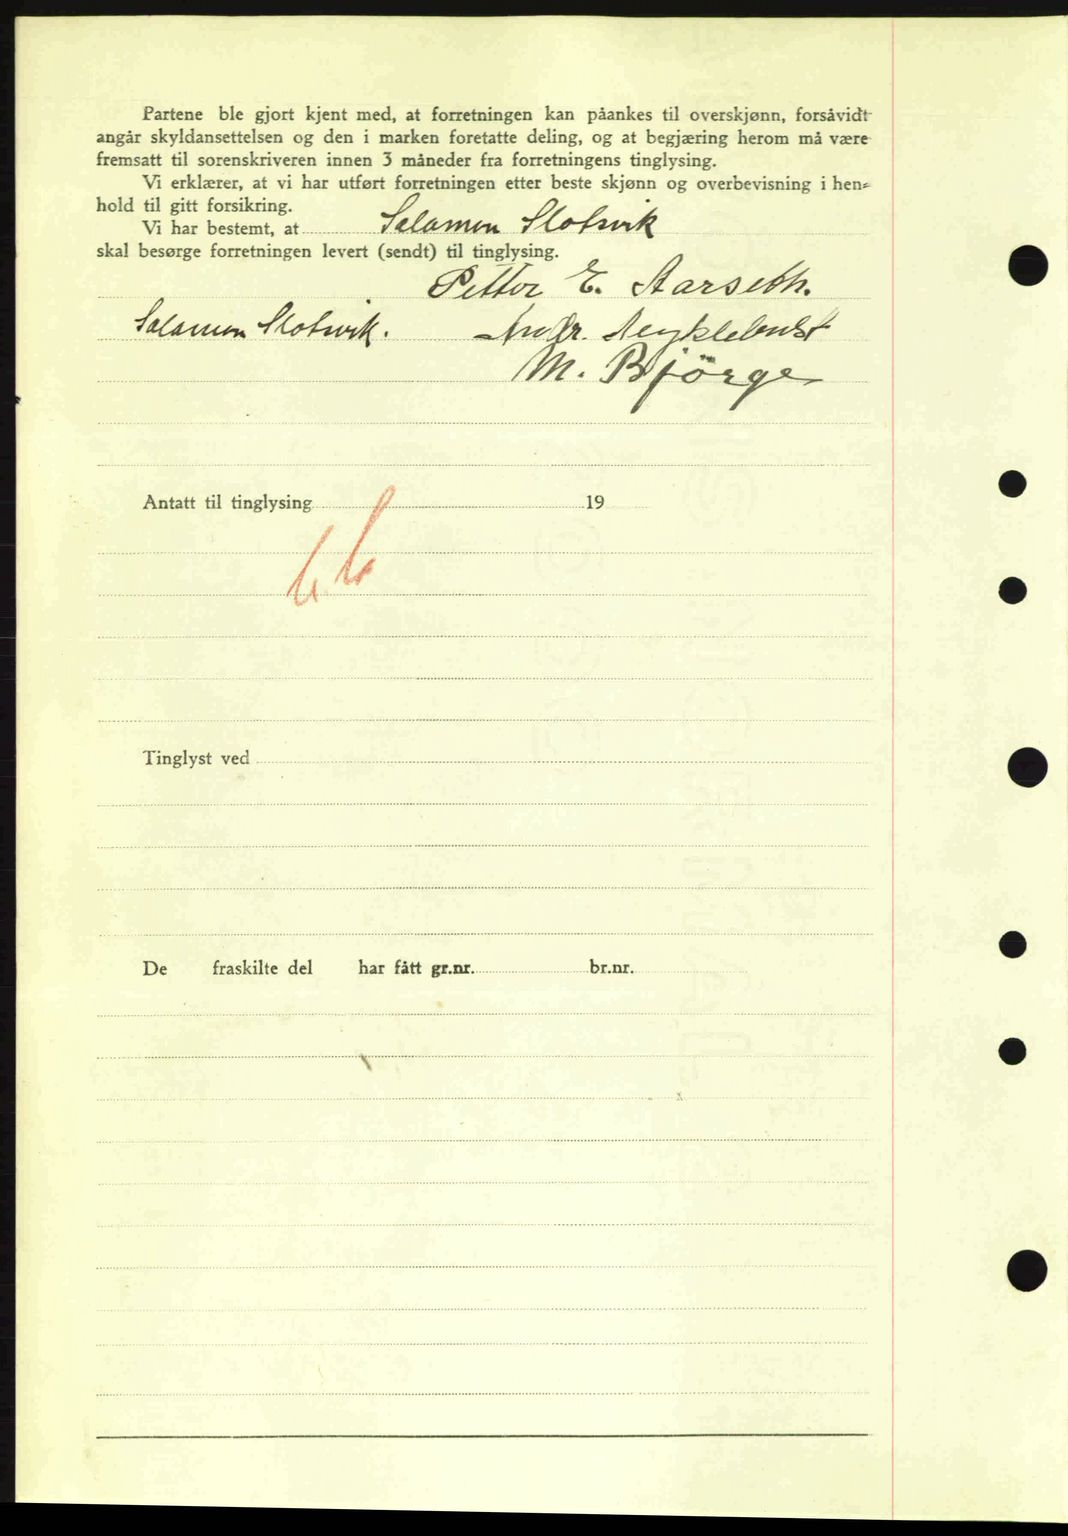 Partene ble gjort kjent med, at forretningen kan påankes til overskjønn, forsåvidt
angår skyldansettelsen og den i marken foretatte deling, og at begjæring herom må være
fremsatt til sorenskriveren innen 3 måneder fra forretningens tinglysing.
Vi erklærer, at vi har utført forretningen etter beste skjønn og overbevisning i hen=
hold til gitt forsikring.
Vi har bestemt, at Salamon Slotsvik
skal besørge forretningen levert (sendt) til tinglysing.
Petter E. Aarseth.
Salamon Slotsvik. Andr. Myklebust
M. Björge
Antatt til tinglysing 19
Tinglyst ved
De fraskilte del har fått gr.nr. br.nr.